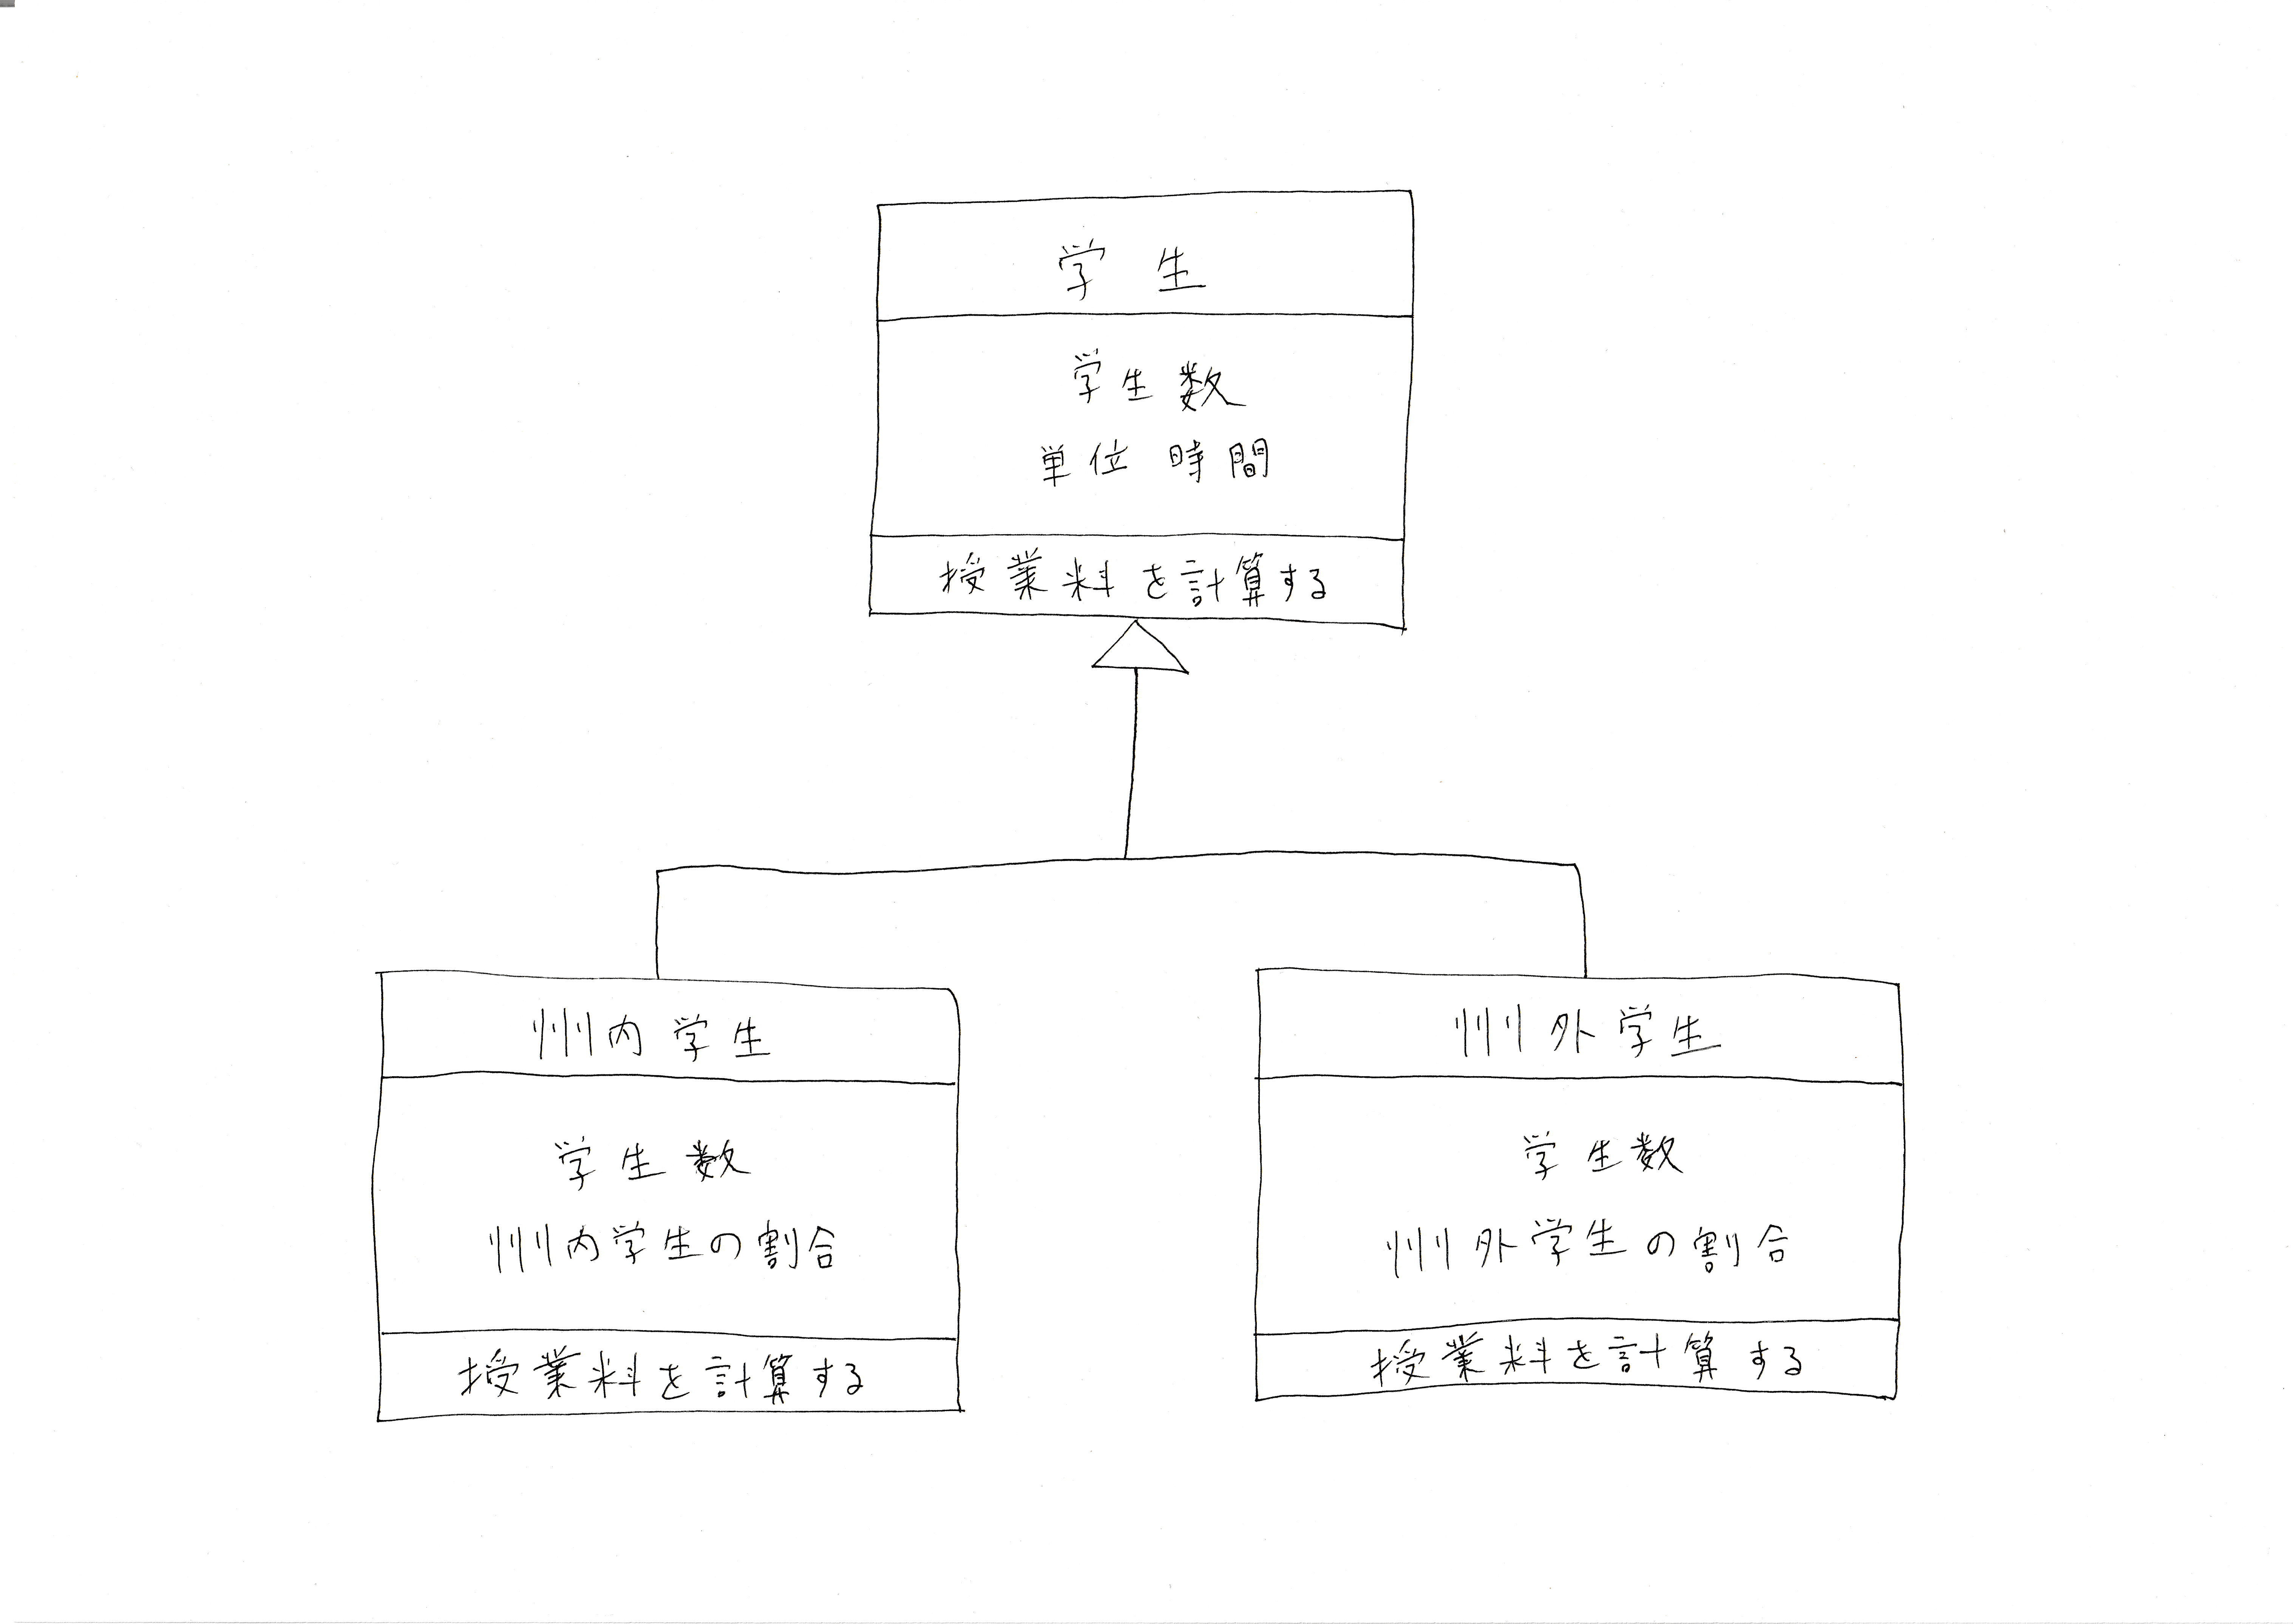 学生
学生数
単位時間
授業料を計算する
州内学生
学生数
州内学生の割合
授業料を計算する
州外学生
学生数
州外学生の割合
授業料を計算する